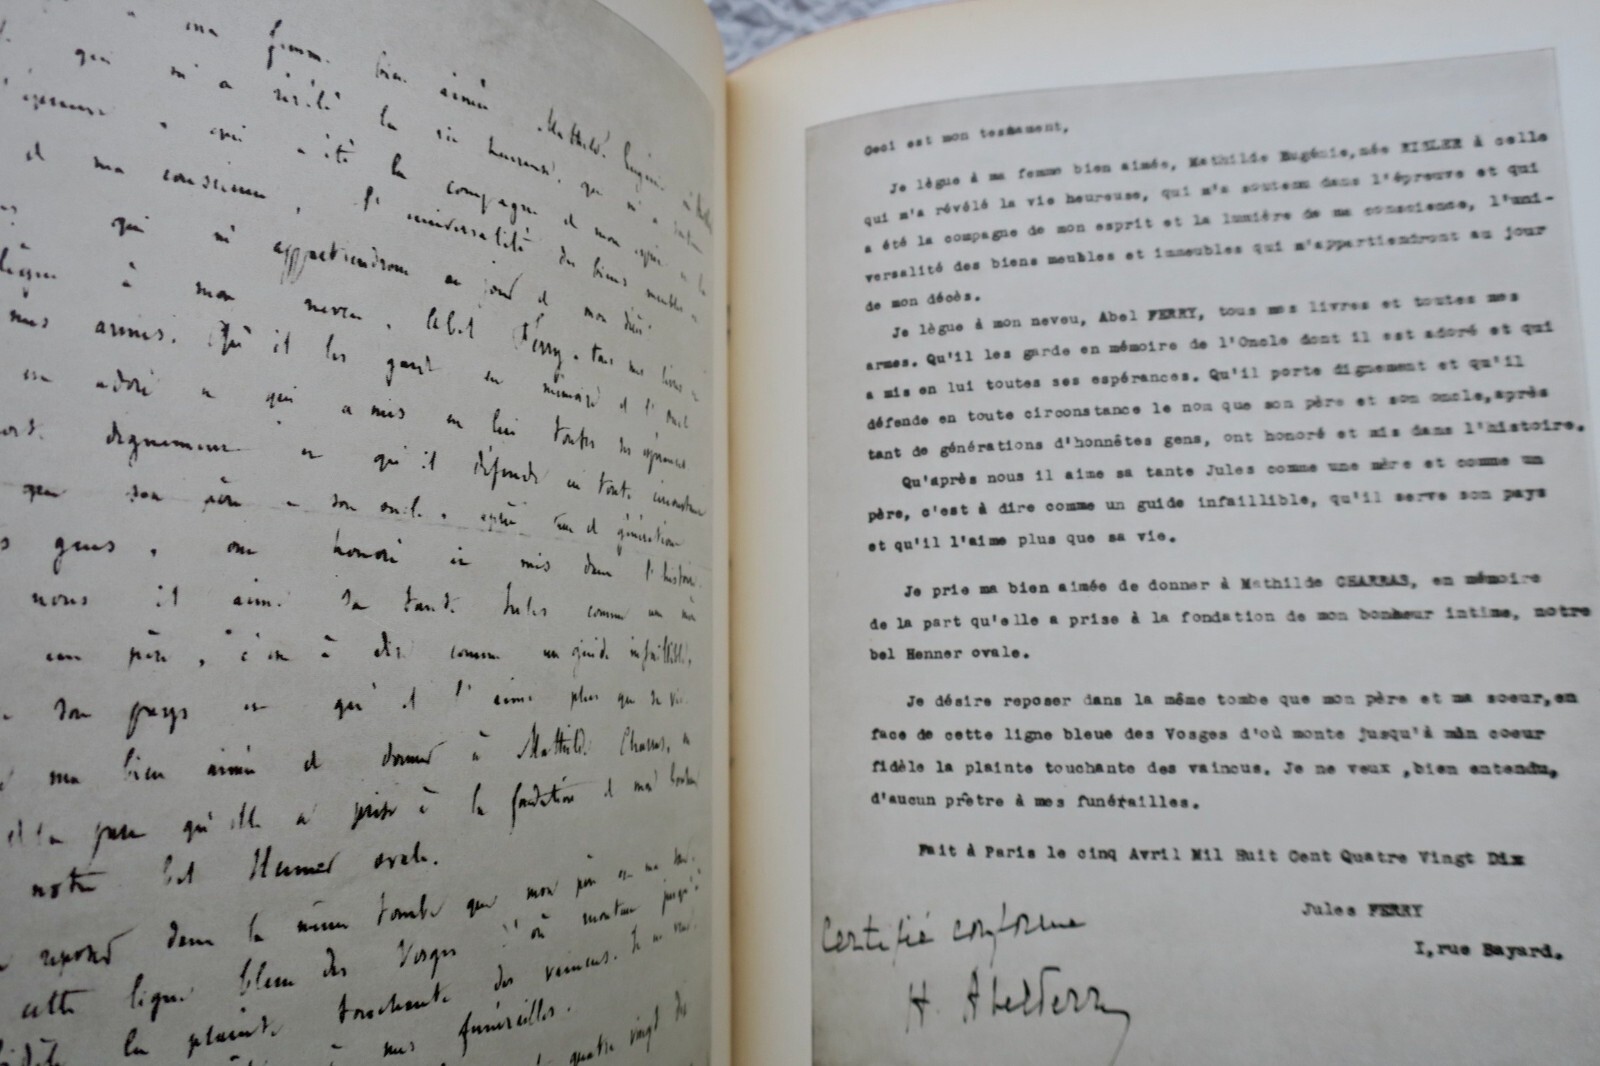 ma femme bien aimée Mathilde Eugénie
qui m'a révélé la vie heureuse, qui m'a soutenu
l'épreuve et qui a été la compagne de mon esprit et la
de ma conscience, l'universalité des biens meubles et
qui m'appartiendront au jour de mon décès.
lègue à mon neveu, Abel Ferry, tous mes livres et
mes armes. Qu'il les garde en mémoire de l'Oncle
est adoré et qui a mis en lui toutes ses espérances
dignement et qu'il défende en toute circonstance
que son père et son oncle, après tant de générations
gens, ont honoré et mis dans l'histoire.
nous il aime sa tante Jules comme une mère
un père, c'est à dire comme un guide infaillible,
son pays et qu'il l'aime plus que sa vie.
ma bien aimée de donner à Mathilde Charras, en
de la part qu'elle a prise à la fondation de mon bonheur
notre bel Henner ovale.
reposer dans la même tombe que mon père et ma soeur
cette ligne bleue des Vosges d'où monte jusqu'à
la plainte touchante des vaincus. Je ne veux
à mes funérailles.
quatre vingt dix
Ceci est mon testament,
Je lègue à ma femme bien aimée, Mathilde Eugénie, née RISLER à celle
qui m'a révélé la vie heureuse, qui m'a soutenu dans l'épreuve et qui
a été la compagne de mon esprit et la lumière de ma conscience, l'uni-
versalité des biens meubles et immeubles qui m'appartiendront au jour
de mon décès.
Je lègue à mon neveu, Abel FERRY, tous mes livres et toutes mes
armes. Qu'il les garde en mémoire de l'Oncle dont il est adoré et qui
a mis en lui toutes ses espérances. Qu'il porte dignement et qu'il
défende en toute circonstance le nom que son père et son oncle, après
tant de générations d'honnêtes gens, ont honoré et mis dans l'histoire.
Qu'après nous il aime sa tante Jules comme une mère et comme un
père, c'est à dire comme un guide infaillible, qu'il serve son pays
et qu'il l'aime plus que sa vie.
Je prie ma bien aimée de donner à Mathilde CHARRAS, en mémoire
de la part qu'elle a prise à la fondation de mon bonheur intime, notre
bel Henner ovale.
Je désire reposer dans la même tombe que mon père et ma soeur, en
face de cette ligne bleue des Vosges d'où monte jusqu'à mon coeur
fidèle la plainte touchante des vaincus. Je ne veux ,bien entendu,
d'aucun prêtre à mes funérailles.
Fait à Paris le cinq Avril Mil Huit Cent Quatre Vingt Dix
Jules FERRY
I, rue Bayard.
Certifié conforme
H. Abel Ferry